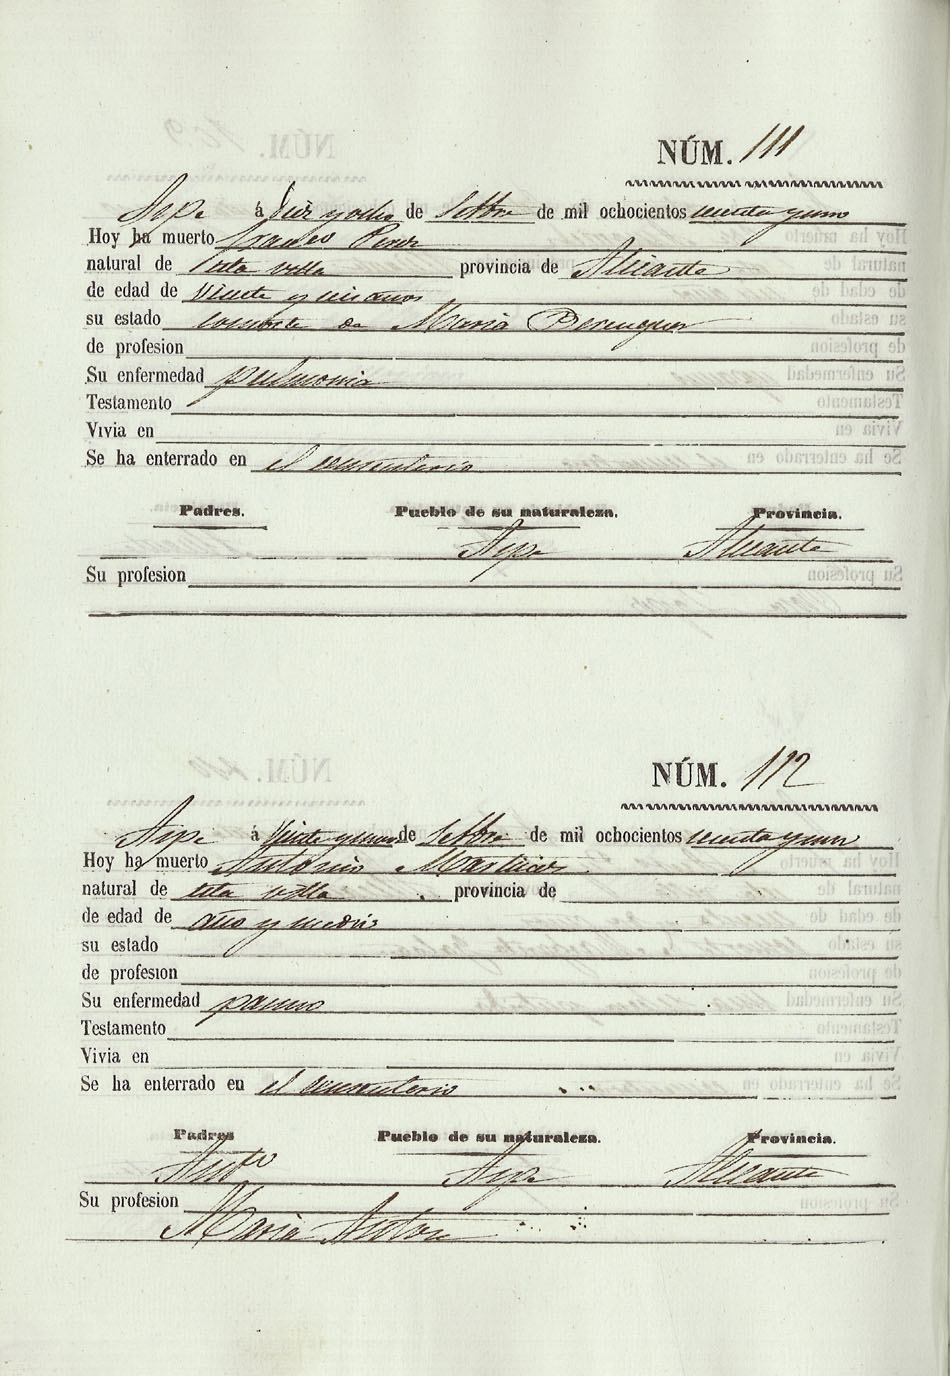 NÚM. 111
Aspe á Diez y ocho de Setbre de mil ochocientos cincuenta y uno
Hoy ha muerto Franco Perez
natural de esta villa provincia de Alicante
de edad de veinte y seis años
su estado consorte de Maria Berenguer
de profesion
Su enfermedad pulmonia
Testamento
Vivia en
Se ha enterrado en el cementerio
Padres. Pueblo de su naturaleza. Provincia.
Aspe Alicante
Su profesion
NÚM. 112
Aspe á Veinte y uno de Setbre de mil ochocientos cincuenta y uno
Hoy ha muerto Antonio Martinez
natural de esta villa provincia de
de edad de año y medio
su estado
de profesion
Su enfermedad
Testamento
Vivia en
Se ha enterrado en el cementerio
Padres Pueblo de su naturaleza. Provincia.
Antº Aspe Alicante
Su profesion
Maria